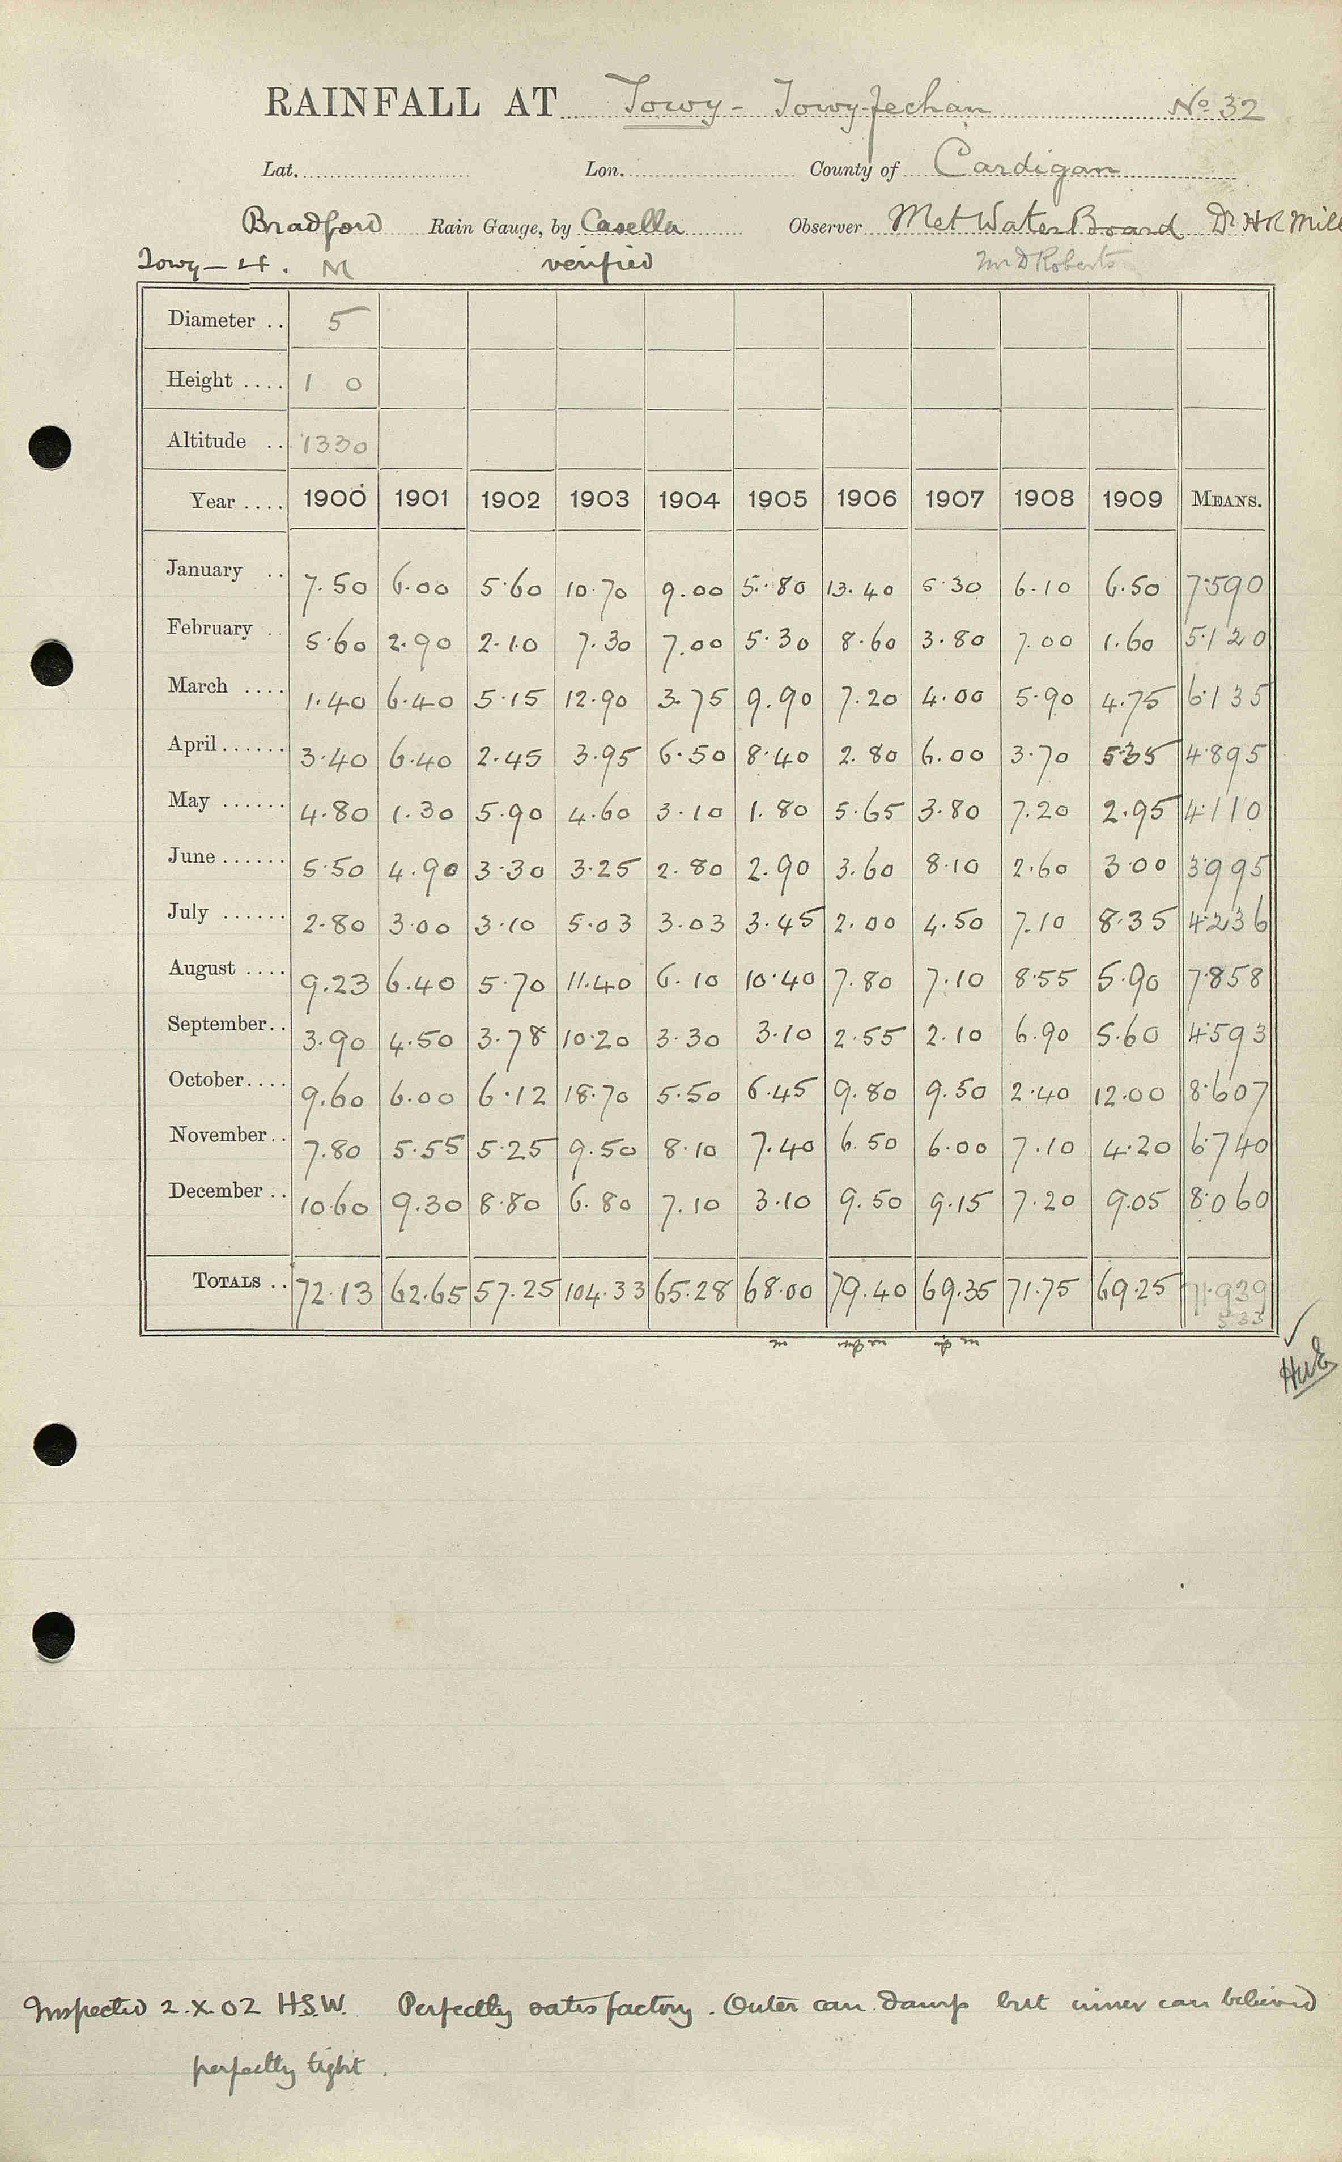 RAINFALL AT Towy - Towy-fechan No. 32
Lat. Lon. County of Cardigan
Bradford Rain Gauge, by Casella Observer Met Water Board Dr H R Mill
Towy - 4. M verified Mr D Roberts
Diameter .. 5
Height .... 1 0
Altitude .. 1330
Year .... 1900 1901 1902 1903 1904 1905 1906 1907 1908 1909 MEANS.
January .. 7.50 6.00 5.60 10.70 9.00 5.80 13.40 5.30 6.10 6.50 7.590
February .. 5.60 2.90 2.10 7.30 7.00 5.30 8.60 3.80 7.00 1.60 5.120
March .... 1.40 6.40 5.15 12.90 3.75 9.90 7.20 4.00 5.90 4.75 6.135
April...... 3.40 6.40 2.45 3.95 6.50 8.40 2.80 6.00 3.70 5.35 4.895
May ...... 4.80 1.30 5.90 4.60 3.10 1.80 5.65 3.80 7.20 2.95 4.110
June...... 5.50 4.90 3.30 3.25 2.80 2.90 3.60 8.10 2.60 3.00 3.995
July ...... 2.80 3.00 3.10 5.03 3.03 3.45 2.00 4.50 7.10 8.35 4.236
August .... 9.23 6.40 5.70 11.40 6.10 10.40 7.80 7.10 8.55 5.90 7.858
September.. 3.90 4.50 3.78 10.20 3.30 3.10 2.55 2.10 6.90 5.60 4.593
October.... 9.60 6.00 6.12 18.70 5.50 6.45 9.80 9.50 2.40 12.00 8.607
November.. 7.80 5.55 5.25 9.50 8.10 7.40 6.50 6.00 7.10 4.20 6.740
December .. 10.60 9.30 8.80 6.80 7.10 3.10 9.50 9.15 7.20 9.05 8.060
TOTALS .. 72.13 62.65 57.25 104.33 65.28 68.00 79.40 69.35 71.75 69.25 71.939
Inspected 2.X.02 H.S.W. Perfectly satisfactory. Outer can damp but inner can believed
perfectly tight.